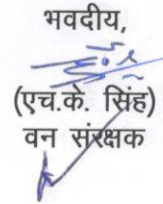 भवदीय,
(एच.के. सिंह)
वन संरक्षक